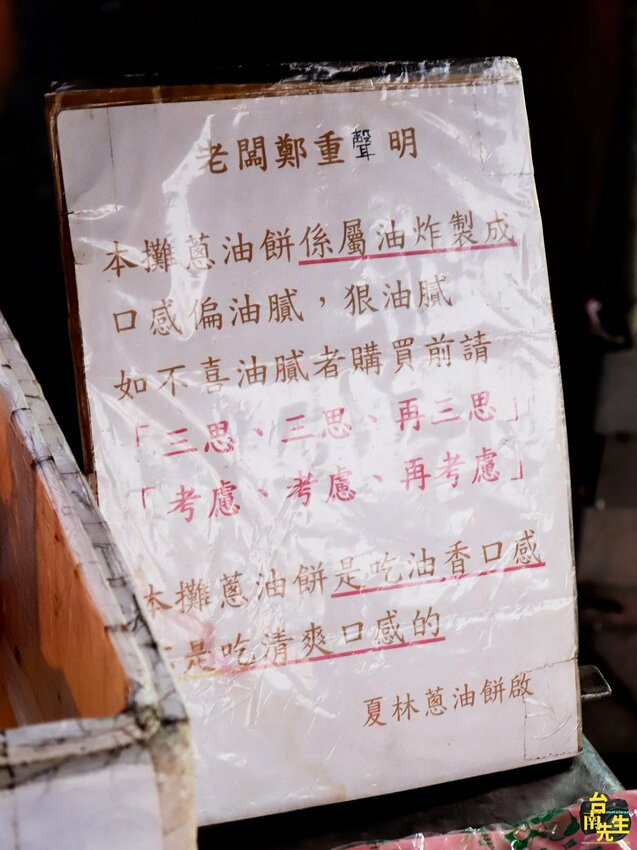 老闆鄭重聲明
本攤蔥油餅係屬油炸製成
口感偏油膩，狠油膩
如不喜油膩者購買前請
「三思、三思、再三思」
「考慮、考慮、再考慮」
本攤蔥油餅是吃油香口感
是吃清爽口感的
夏林蔥油餅啟
台南先生